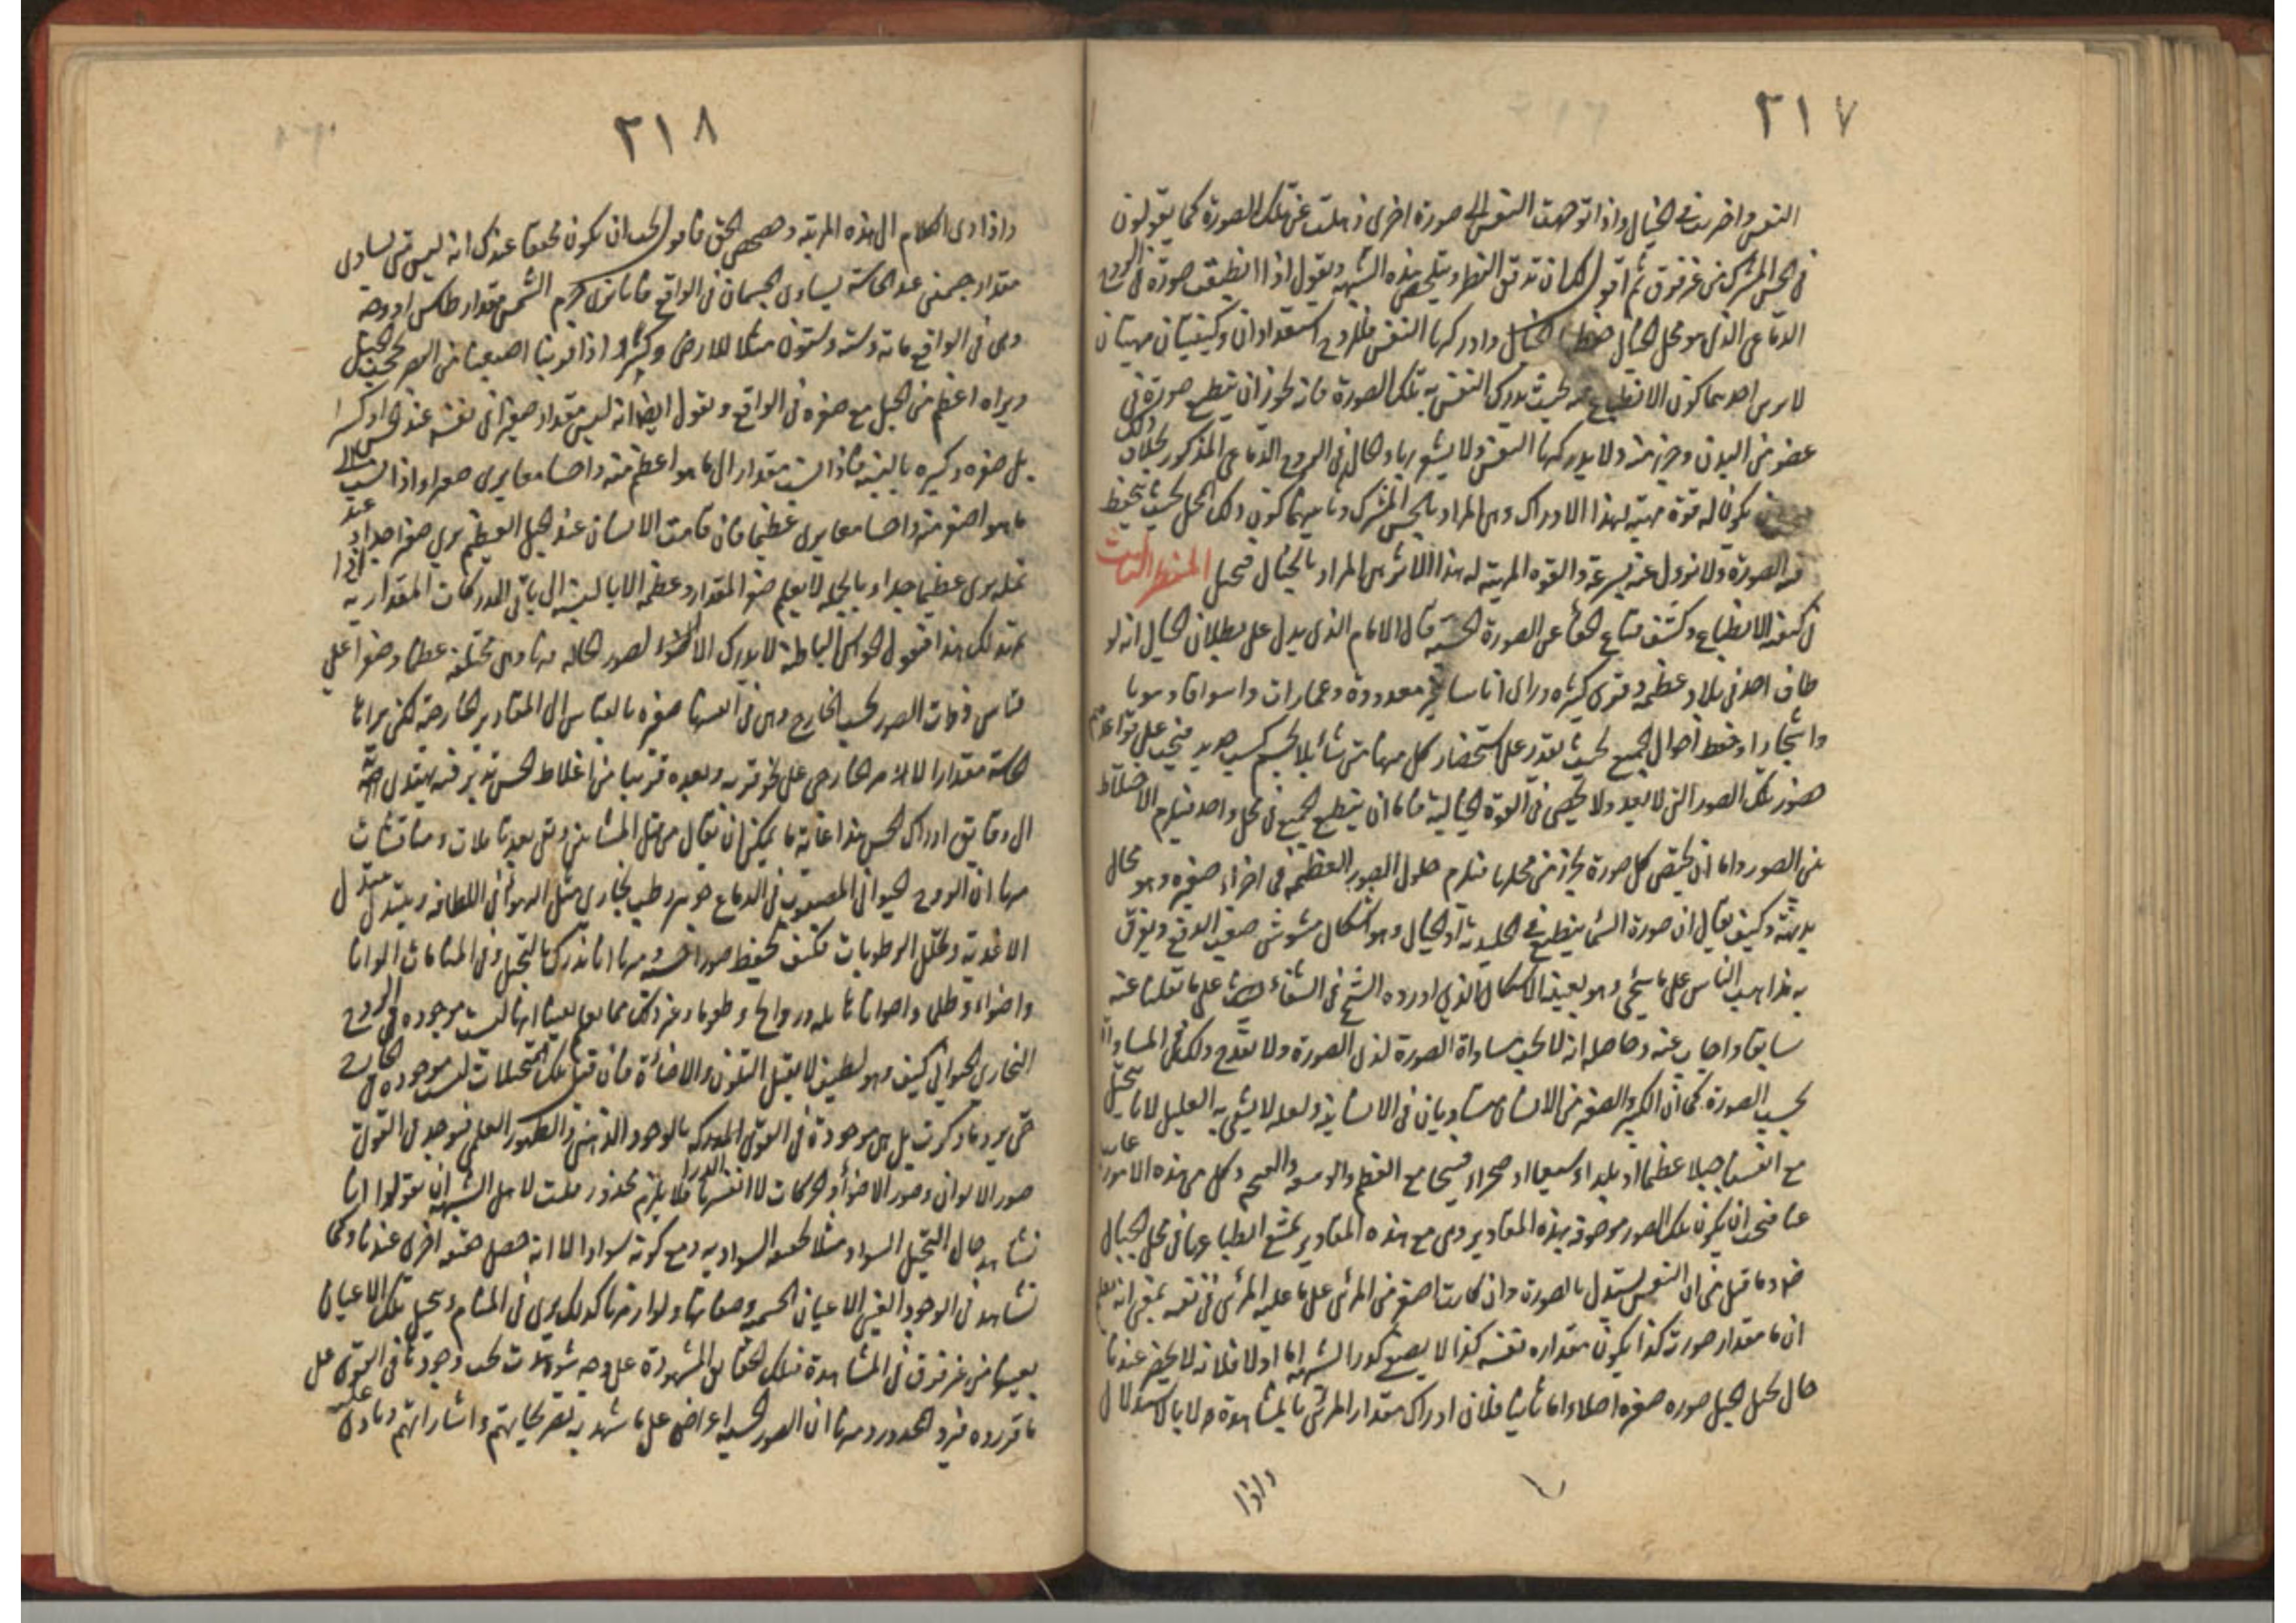 ٢١٧
النفس واخرى في الخيال واذا توجهت النفس الى صورة اخرى ذهلت عن تلك الصورة كما يقولون
في الحس المشترك من غير فرق ثم اقول لك ان تدقق النظر وتلخص هذه الشبهة وتقول اذا انطبعت صورة في الروح
الدماغي الذي هو محل الخيال الخيال وادركها النفس فللروح استعدادان وكيفيتان مهيئتان
كون الانطباع فيه بحيث يدرك النفس به تلك الصورة فانه يجوز ان ينطبع صورة في
عضو من البدن وجزء منه ولا يدركها النفس ولا يشعر بها وحال في الروح الدماغي المذكور بخلاف ذلك
يكون له قوة مهيئة لهذا الادراك وهي المراد بالحس المشترك وثانيهما كون ذلك المحل بحيث يحفظ
فيه الصورة ولا تزول عنه بسرعة والقوة المهيئة له هذا الاثر هي المراد بالخيال فتخيل المنظر الثالث
في كيفية الانطباع وكشف قناع الخفاء عن الصورة الحسية قال الامام الذي يدل على بطلان الخيال انه لو
طاف احد في بلاد عظيمة وقرى كثيرة وراى اناسا غير معدودة وعمارات واسواقا وبيوتا
واشجارا وحفظ احوال الجميع بحيث يقدر على استحضار كل منها متى شاء بلا تجشم كسب جديد فيجب على قواعدهم
حضور تلك الصور التي لا تعد ولا تحصى في القوة الخيالية فاما ان ينطبع الجميع في محل واحد فيلزم الاختلاط
بين الصور واما ان يختص كل صورة بجزء من محلها فيلزم حلول الصور العظيمة في اجزاء صغيرة وهو محال
بديهة وكيف يقال ان صورة السماء ينطبع في الجليدية او الخيال وهو اشكال مشوش صعب الدفع وتفرق
به مذاهب الناس على ما سيجيء وهو بعينه الاشكال الذي اورده الشيخ في الشفاء على ما نقلنا عنه
سابقا واجاب عنه وحاصله انه لا يجب مساواة الصورة لذي الصورة ولا يقدح ذلك في المساواة
بحسب الصورة كما ان الكبير والصغير من الانسان متساويان في الانسانية ولعله لا يشفي به العليل لانا نتخيل
مع انفسنا جبلا عظيما او بلدا وسيعا او صحراء فسيحا مع العظم والوسعة والفسح وكل من هذه الامور غائب
عنا فيجب ان يكون تلك الصور موصوفة بهذه المقادير وهي مع هذه المقادير يمتنع انطباعها في محل الخيال
وما قيل من ان النفس يستدل بالصورة وان كانت اصغر من المرئي على ما عليه المرئي في نفسه بمعنى انه يعلم
ان ما مقدار صورته كذا يكون مقداره نفسه كذا لا يصفي كدر الشبهة اما اولا فلانه لا يحضر عندنا
حال تخيل الجبل صورة صغيرة اصلا واما ثانيا فلان ادراك مقدار المرئي بالمشاهدة لا بالاستدلال
واذا
٢١٨
واذا دى الكلام الى هذه المرتبة وحصحص الحق فاقول يجب ان يكون محققا عندك انه ليس متى تساوى
مقدار جسمين عند الحاسة يساوى الجسمان في الواقع فانا نرى جرم الشمس مقدار طاس او
وهي في الواقع مائة وستة وستون مثلا للارض وكثيرا اذا قربنا اصبعنا من البصر يحجب الجبل
ويراه اعظم من الجبل مع صغره في الواقع ونقول ايضا انه ليس مقدار صغيرا في نفسه عند الحس او كبيرا
بل صغره وكبره بالنسبة فاذا نسبت مقدارا الى ما هو اعظم منه واحسا معا يرى صغيرا واذا نسبت الى
ما هو اصغر منه واحسا معا يرى عظيما فان قامت الانسان عند الجبل العظيم يرى صغيرا جدا وعند
نملة يرى عظيما جدا وبالجملة لا يعلم صغر المقدار وعظمه الا بالنسبة الى باقي المدركات المقدارية اذا
تمهد لك هذا فنقول الحواس الباطنة لا يدرك الا الصور الحالة فيها وهي مختلفة عظما وصغرا على
قياس ذوات الصور بحسب الخارج وهي في انفسها صغيرة بالقياس الى المقادير الخارجة لكن يراها
الحاسة مقدارا للامر الخارجي على نحو قربه وبعده قريبا من اغلاط الحس تدبر فيه يهتدى
الى دقائق ادراك الحس هذا غاية ما يمكن ان يقال من قبل المشائين وبقي بعد تاملات ومناقشات
منها ان الروح الحيواني المصبوب في الدماغ جوهر رطب بخاري مثل الهواء في اللطافة ويتبدل
الاغذية وتحلل الرطوبات فكيف يحفظ صورا ومنها انا ندرك بالتخيل وفي المنامات الوانا
واضواء وظلى واصواتا هائلة وروائح وطعوما وغير ذلك مما يعلم يقينا انها ليست موجودة في الروح
البخاري الحيواني كيف وهو لطيف لا يقبل التلون والاضاءة فان قيل تلك المتخيلات ليست موجودة في الخارج
حتى يرد ما ذكرت بل هي موجودة في القوى المدركة بالوجود الذهني والظهور العلمي فيوجد في القوى
صور الالوان وصور الاضواء والحركات لا انفسها فلا يلزم محذور قلت لاهل الشبهة ان يقولوا انا
نشاهد حال التخيل السواد مثلا بحقيقة السوادية ومع كونه سوادا لا انه حصل حقيقة اخرى عندنا وكما
نشاهد في الوجود العيني الاعيان الجسمية وصفاتها ولوازمها كذلك يرى في المنام وتخيل تلك الاعيان
بعينها من غير فرق في المشاهدة فتلك الحقائق المشهودة على وجه شوهدت يجب وجودها في القوى على
ما قرروه فيرد المحذور ومنها ان الصور الحسية اعراض على ما شهد به تصريحاتهم واشاراتهم وما دل عليه